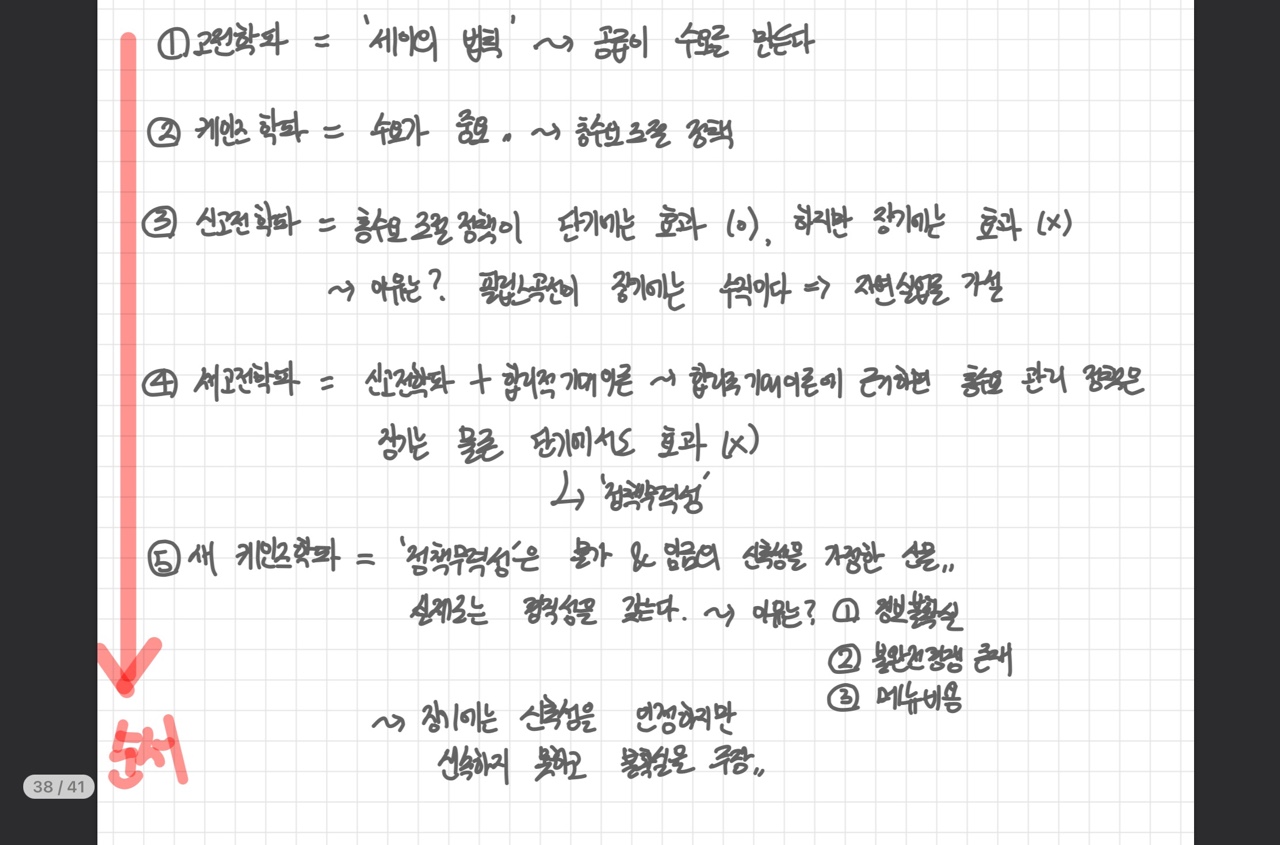 ① 고전학파 = '세이의 법칙' ~> 공급이 수요를 만든다
② 케인즈 학파 = 수요가 중요. ~> 총수요조절 정책
③ 신고전학파 = 총수요 조절 정책이 단기에는 효과 (o), 하지만 장기에는 효과 (x)
~> 이유는? 필립스곡선이 장기에는 수직이다 => 자연실업률 가설
④ 새고전학파 = 신고전학파 + 합리적 기대이론 ~> 합리적 기대이론에 근거하면 총수요 관리 정책은
장기는 물론 단기에서도 효과 (x)
↳ '정책무력성'
⑤ 새 케인즈학파 = '정책무력성'은 물가 & 임금의 신축성을 가정한 산물,,
실제로는 경직성을 갖는다. ~> 이유는? ① 정보불확실
② 불완전경쟁 존재
③ 메뉴비용
~> 장기에는 신축성을 인정하지만
신속하지 못하고 불확실을 주장,,
순서
38 / 41